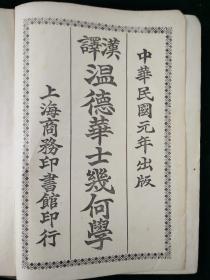 中華民國元年出版
漢譯溫德華士幾何學
上海商務印書館印行